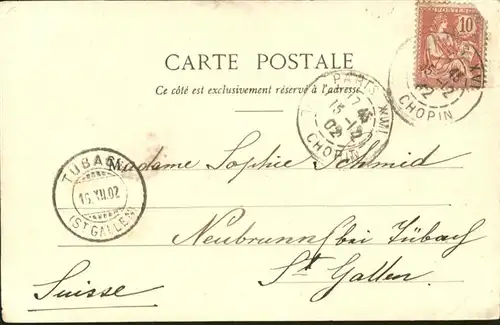 10
POSTES
CARTE POSTALE
Ce côté est exclusivement réservé à l'adresse
PARIS XVI
15 -12
02
CHOPIN
XVI
15
-12
CHOPIN
TUBACH
16.XII.02
(ST GALLEN)
Madame Sophie Schmid
Neubrunn (bei Tübach
St Gallen
Suisse